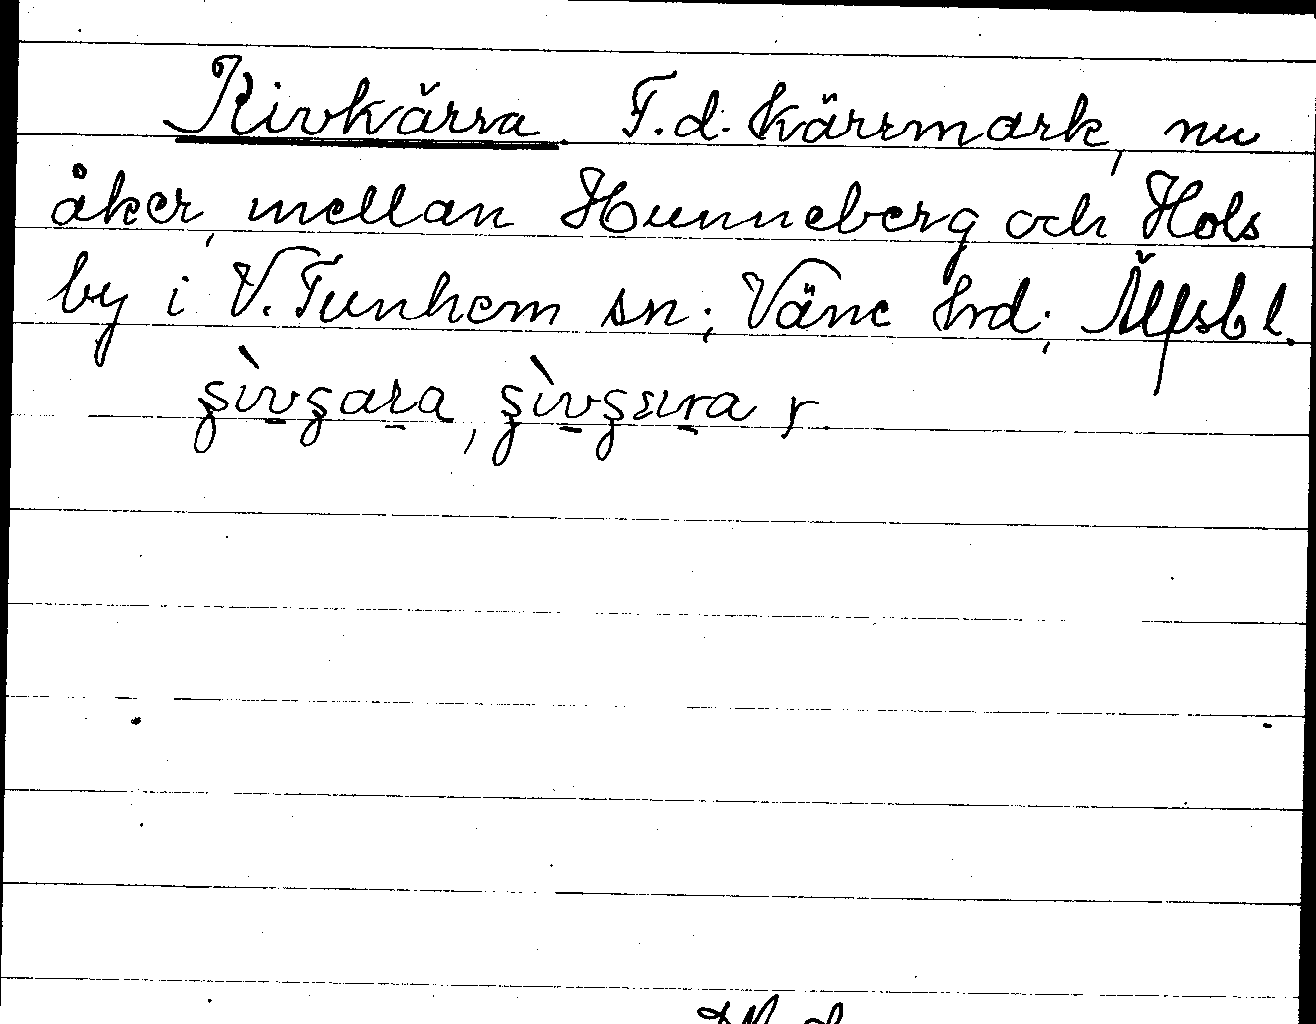 Kivkärra. F.d. kärrmark, nu
åker, mellan Hunneberg och Hols
by i V. Tunhem sn; Väne hrd; Älfsb l.